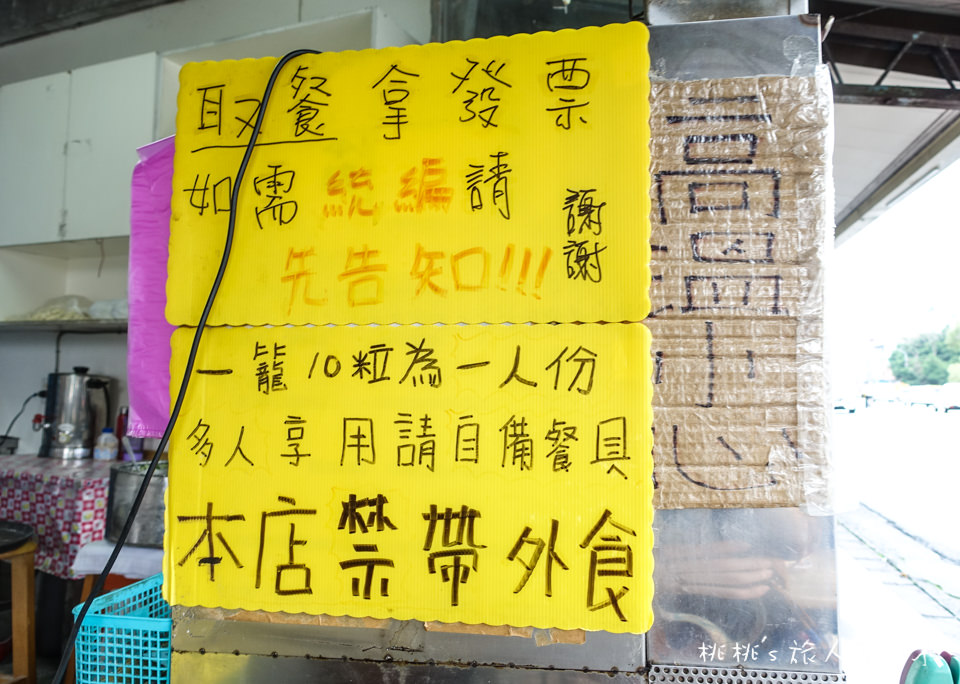 取餐拿發票
如需統編請
先告知!!!
謝謝
一籠10粒為一人份
多人享用請自備餐具
本店禁帶外食
高溫小心
桃桃's 旅人